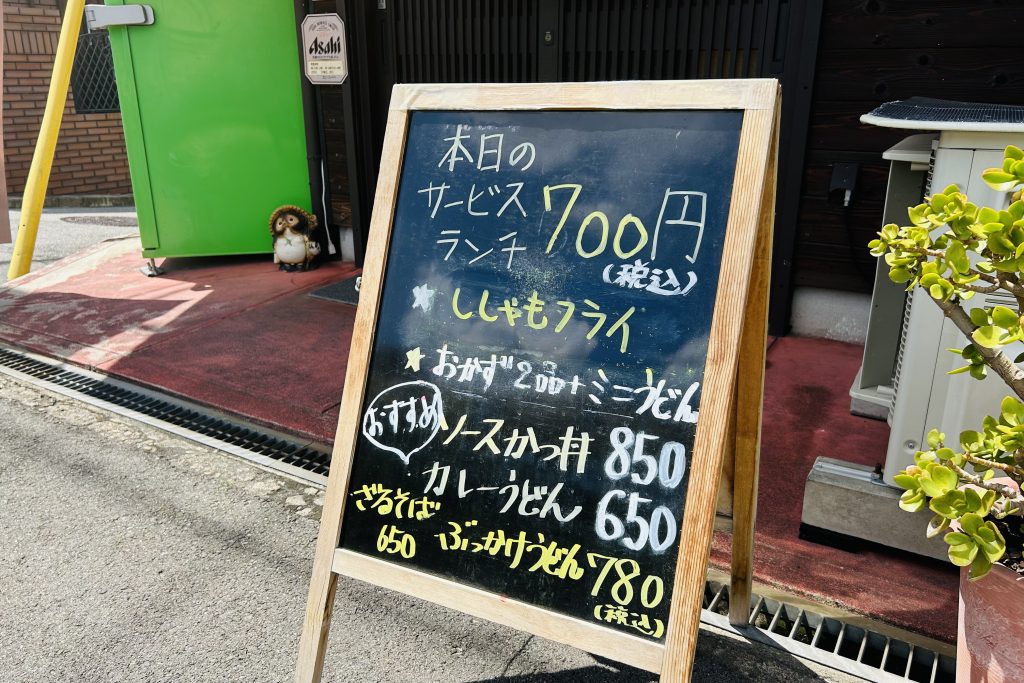 Asahi
本日の
サービス
ランチ
700円
(税込)
★ ししゃもフライ
★ おかず2品+ミニうどん
おすすめ
ソースかつ丼 850
カレーうどん 650
ざるそば
650
ぶっかけうどん 780
(税込)